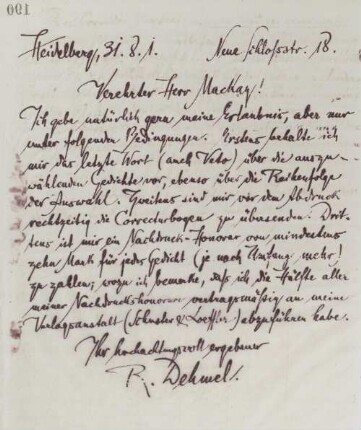 190
Heidelberg, 31.8.1. Neue Schlossstr. 18.
Verehrter Herr Mackay!
Ich gebe natürlich gern meine Erlaubnis, aber nur
unter folgenden Bedingungen. Erstens behalte ich
mir das letzte Wort (auch Veto) über die auszu-
wählenden Gedichte vor, ebenso über die Reihenfolge
der Auswahl. Zweitens sind mir vor dem Abdruck
rechtzeitig die Correcturbogen zu übersenden. Drit-
tens ist mir ein Nachdruck-Honorar von mindestens
zehn Mark für jedes Gedicht (je nach Umfang mehr)
zu zahlen; wozu ich bemerke, daß ich die Hälfte aller
meiner Nachdruckshonorare vertragsmäßig an meine
Verlagsanstalt (Schuster & Loeffler) abzuführen habe.
Ihr hochachtungsvoll ergebener
R. Dehmel.